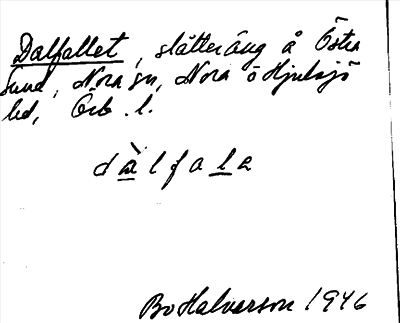 Dalfallet, slåtteräng å Östra
Sund, Nora sn, Nora o Hjulsjö
bd, Örb. l.
dàlfala
Bo Halvarson 1946